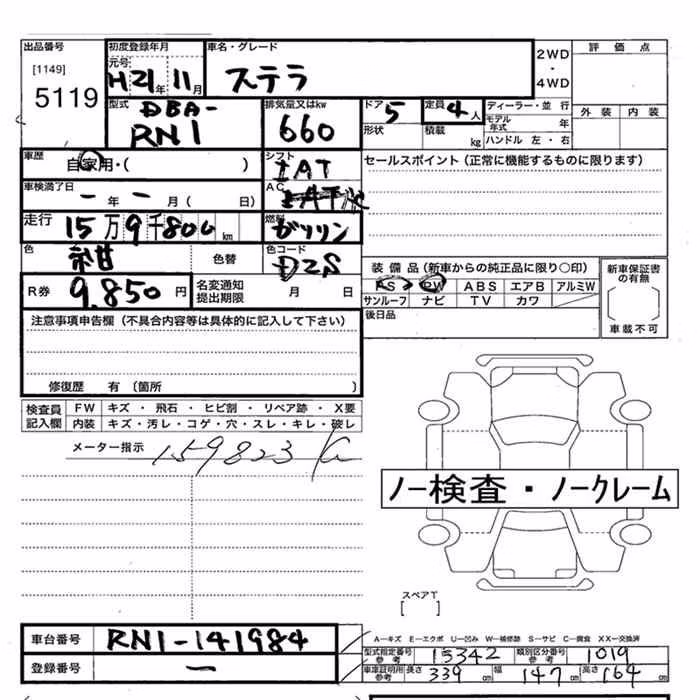 出品番号 初度登録年月 車名・グレード 2WD ・ 4WD 評価点
[1149] 元号
5119 H21年 11月 ステラ
型式 排気量又はkw ドア 定員 ディーラー・並行 外装 内装
DBA-
RN1 660 5 4人 モデル年式 年
形状 積載 kg ハンドル 左・右
車歴 自家用・( ) シフト IAT セールスポイント(正常に機能するものに限ります)
車検満了日 ー年 ー月( 日) AC
走行 15万9千800km 燃料 ガソリン
色 紺 色替 色コード DZS
装備品(新車からの純正品に限り○印) 新車保証書の有無
R券 9.850円 名変通知提出期限 月 日
PS PW ABS エアB アルミW
サンルーフ ナビ TV カワ 車載不可
後日品
注意事項申告欄(不具合内容等は具体的に記入して下さい)
修復歴 有 〔箇所 〕
検査員記入欄 FW キズ・飛石・ヒビ割・リペア跡・X要
内装 キズ・汚レ・コゲ・穴・スレ・キレ・破レ
メーター指示 159823
ノー検査・ノークレーム
スペアT
[ ]
車台番号 RN1-141984
登録番号 ー
A―キズ E―エクボ U―凹み W―補修跡 S―サビ C―腐食 XX―交換済
型式指定番号 参考 15342 類別区分番号 参考 1019
車庫証明用 参考 長さ 339cm 幅 147cm 高さ 164cm